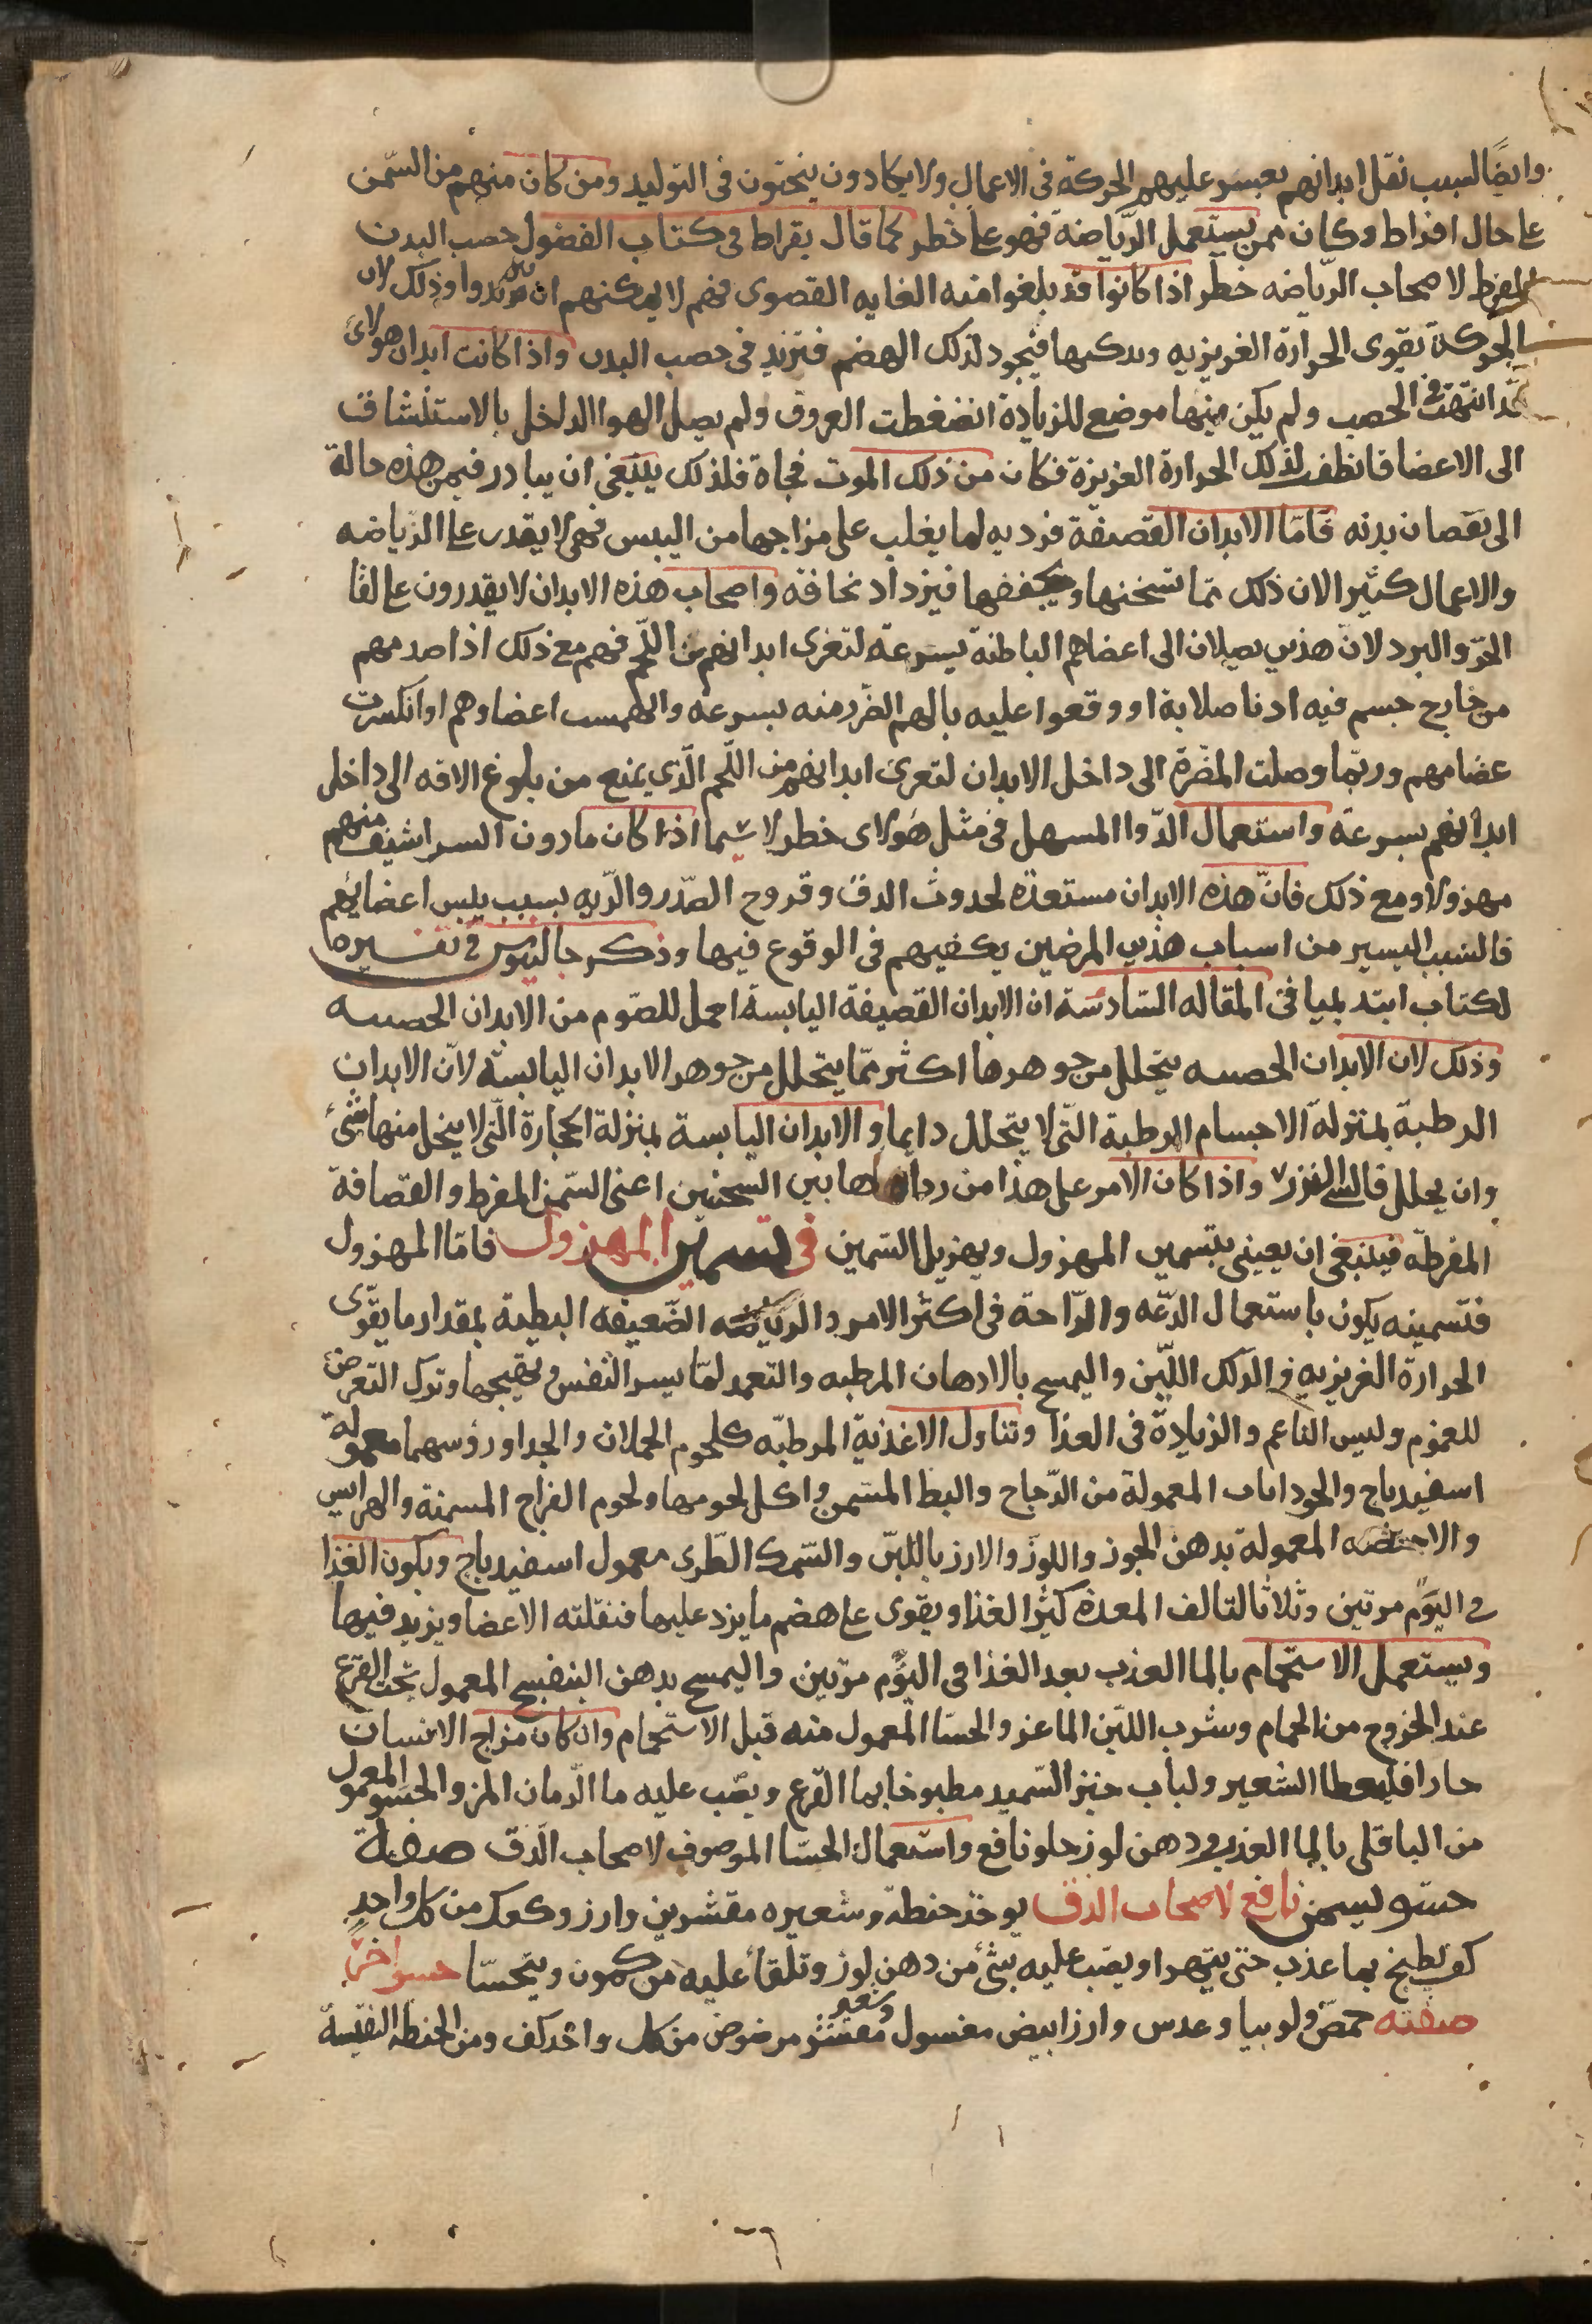 وايضًا لسبب نقل ابدانهم يعسر عليهم الحركة فى الاعمال ولا يكادون ينجتون فى التوليد ومن كان منهم من السّمن
على حال افراط وكان ممن يستعمل الرّياضة فهو على خطر كما قال بقراط فى كتاب الفصول خصب البدن
المفرط لاصحاب الرّياضه خطر اذا كانوا قد بلغوا منه الغايه القصوى فهم لا يمكنهم ان يزيدوا وذلك لان
الحركة تقوى الحرارة الغريزيه وتذكيها فيجود لذلك الهضم فتزيد فى خصب البدن واذا كانت ابدان هولائ
قد انتهت فى الخصب ولم يكن فيها موضع للزيادة انضغطت العروق ولم يصل الهوا الداخل بالاستنشاق
الى الاعضا فانطفت لذلك الحرارة الغريزة فكان من ذلك الموت فجاة فلذلك ينبغى ان يبادر فيمن هذه حالة
الى نقصان بدنه فامّا الابدان القصيفة فرديه لما يغلب على مزاجها من اليبس فهى لا يقدر على الرّياضه
والاعمال كثيرا لان ذلك ممّا تسخنها ويجففها فيزداد نحافة واصحاب هذه الابدان لا يقدرون على لقا
الحرّ والبرد لانّ هذين يصلان الى اعضاهم الباطنة بسرعة لتعرى ابدانهم من اللّحم فهم مع ذلك اذا صدمهم
من خارج جسم فيه ادنا صلابة او وقعوا عليه نالهم الضّرر منه بسرعه وانهمست اعضاوهم او انكسرت
عضامهم وربّما وصلت المضّرة الى داخل الابدان لتعرى ابدانهم من اللّحم الّذى يمنع من بلوغ الافه الى داخل
ابدانهم بسرعة واستعمال الدّوا المسهل فى مثل هولاى خطر لا سيّما اذا كان مادون السراشيف منهم
مهزولا ومع ذلك فانّ هذه الابدان مستعدّه لحدوث الدق وقروح الصّدر والرّيه بسبب يبس اعضايهم
فالسبب اليسير من اسباب هذين المرضين يكفيهم فى الوقوع فيها وذكر جالينوس فى تفسيره
لكتاب ابتديميا فى المقاله السّادسة ان الابدان القصيفة اليابسة احمل للصّوم من الابدان الخصبه
وذلك لان الابدان الخصبه يتحلل من جوهرها اكثر ممّا يتحلل من جوهر الابدان اليابسة لانّ الابدان
الرطبة بمنزلة الاجسام الرطبة التّى لا يتحلل دايما والابدان اليابسة بمنزلة الحجارة الّتى لا ينحل منها شئ
وان يحلل فالشى النزر واذا كان الامر على هذا من رداه هاتين السحنتين اعنى السّمن المفرط والقصافة
المفرطه فينبغى ان يعينى بتسمين المهزول ويهزيل السّمين فى تسمين المهزول فامّا المهزول
فتسمينه يكون باستعمال الدّعه والرّاحة فى اكثر الامر والرياضه الضّعيفه البطية بمقدار ما يقوّى
الحرارة الغريزيه والدّلك اللّيّن واليمسح بالادهان المرطبه والتّعمد لمّا يسر النّفس ويفيجها وترك التعرض
للغموم ولبس الناعم والزيادة فى الغذا وتناول الاغذية المرطبّه كلحوم الحملان والجدا ورؤسهما معمولة
اسفيدباج والجوذابات المعمولة من الدّجاج والبط المسّمن واكل لحومها ولحوم الفراج المسمنة والهرايس
والاخبصه المعمولة بدهن الجوز واللّوز والارز باللّبن والسّمك الطّرى معمول اسفيدباج ويكون الغذا
فى اليوم مرتين وثلاثا لتالف المعدة كثير الغذا ويقوى على هضم ما يزد عليها فنقلته الاعضا ويزيد فيها
ويستعمل الاستحمام بالما العذب بعد الغذا فى اليوم مرّتين واليمسح بدهن البنفسج المعمول بحب القرع
عند الخروج من الحمام وشرب اللّبن الماعز والحسّا المعمول منه قبل الاستحمام وان كان مزاج الانسان
حارا فليعطا الشعير ولباب خبز السّميد مطبوخا بما القرع ويصّب عليه ما الرّمان المز والحسو المعمول
من الباقلى بالما العذب ودهن لوز حلو نافع واستعمال الحسّا الموصوف لاصحاب الدّق صفة
حسو يسمن نافع لاصحاب الدق يوخذ حنطه وشعيره مقشرين وارز وكعك من كل واحد
كف يطبخ بما عذب حتى يتهرا ويصّب عليه شئ من دهن لوز وتلقا عليه من كمون ويتحسّا حسو اخر
صفته حمّص ولوبيا وعدس وارز ابيض مغسول وشعير مقشر مرضوض من كل واحد كف ومن الحنطه النقيسة